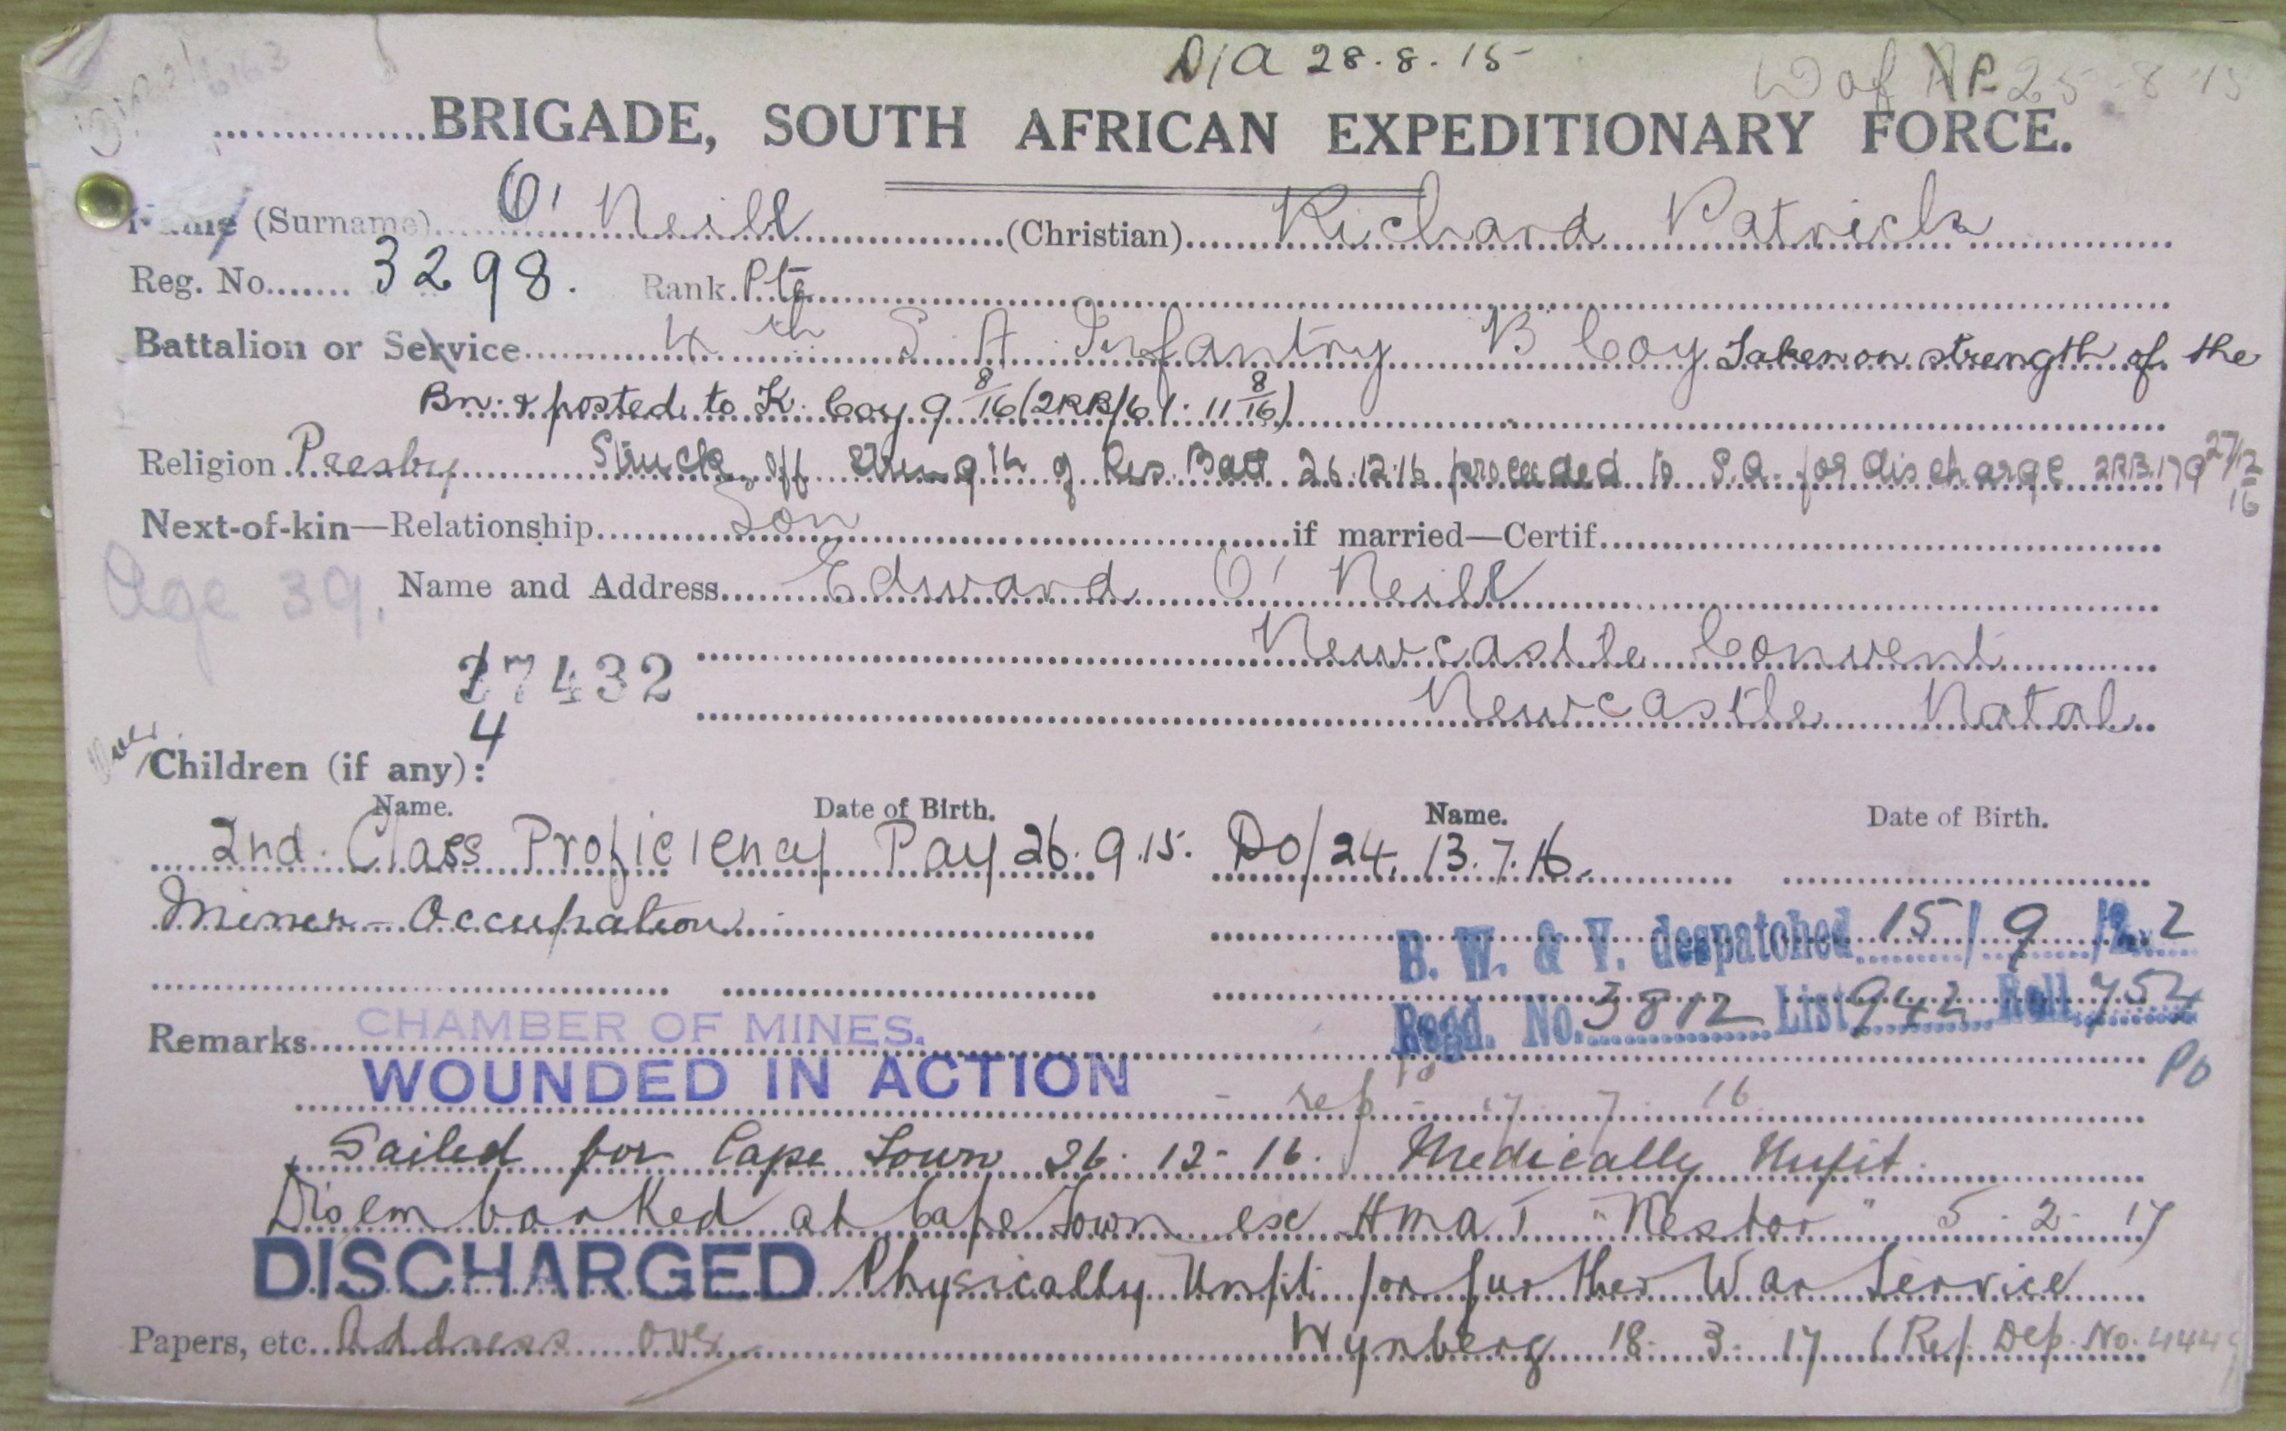 D/A 28.8.15
W of A P 25-8-15
BRIGADE, SOUTH AFRICAN EXPEDITIONARY FORCE.
Name (Surname) O'Neill (Christian) Richard Patrick
Reg. No. 3298. Rank Pte
Battalion or Service 4th S A Infantry B Coy Taken on strength of the
Bn. & posted to K. Coy 9 8/16 (2RB/61. 11 8/16)
Religion Presby Struck off Strength of Res. Batt 26.12.16 proceeded to S.A. for discharge 2RB.179 27/12/16
Next-of-kin—Relationship Son if married—Certif.
Age 39. Name and Address Edward O'Neill
Newcastle Convent
17432
Newcastle Natal
4
Over
Children (if any):
Name. Date of Birth. Name. Date of Birth.
2nd Class Proficiency Pay 26.9.15. DO/24. 13.7.16.
Miner - Occupation
B. W. & V. despatched 15/9/22
Regd. No. 3812 List 942 Roll 754
Remarks CHAMBER OF MINES.
PO
WOUNDED IN ACTION - rep - 17 7 16
Sailed for Cape Town 26.12-16. Medically Unfit.
Disembarked at Cape Town ex HMAT "Nestor" 5-2-17
DISCHARGED Physically Unfit for further War Service
Papers, etc. Address over Wynberg 18-3-17 (Ref Dep. No. 4449